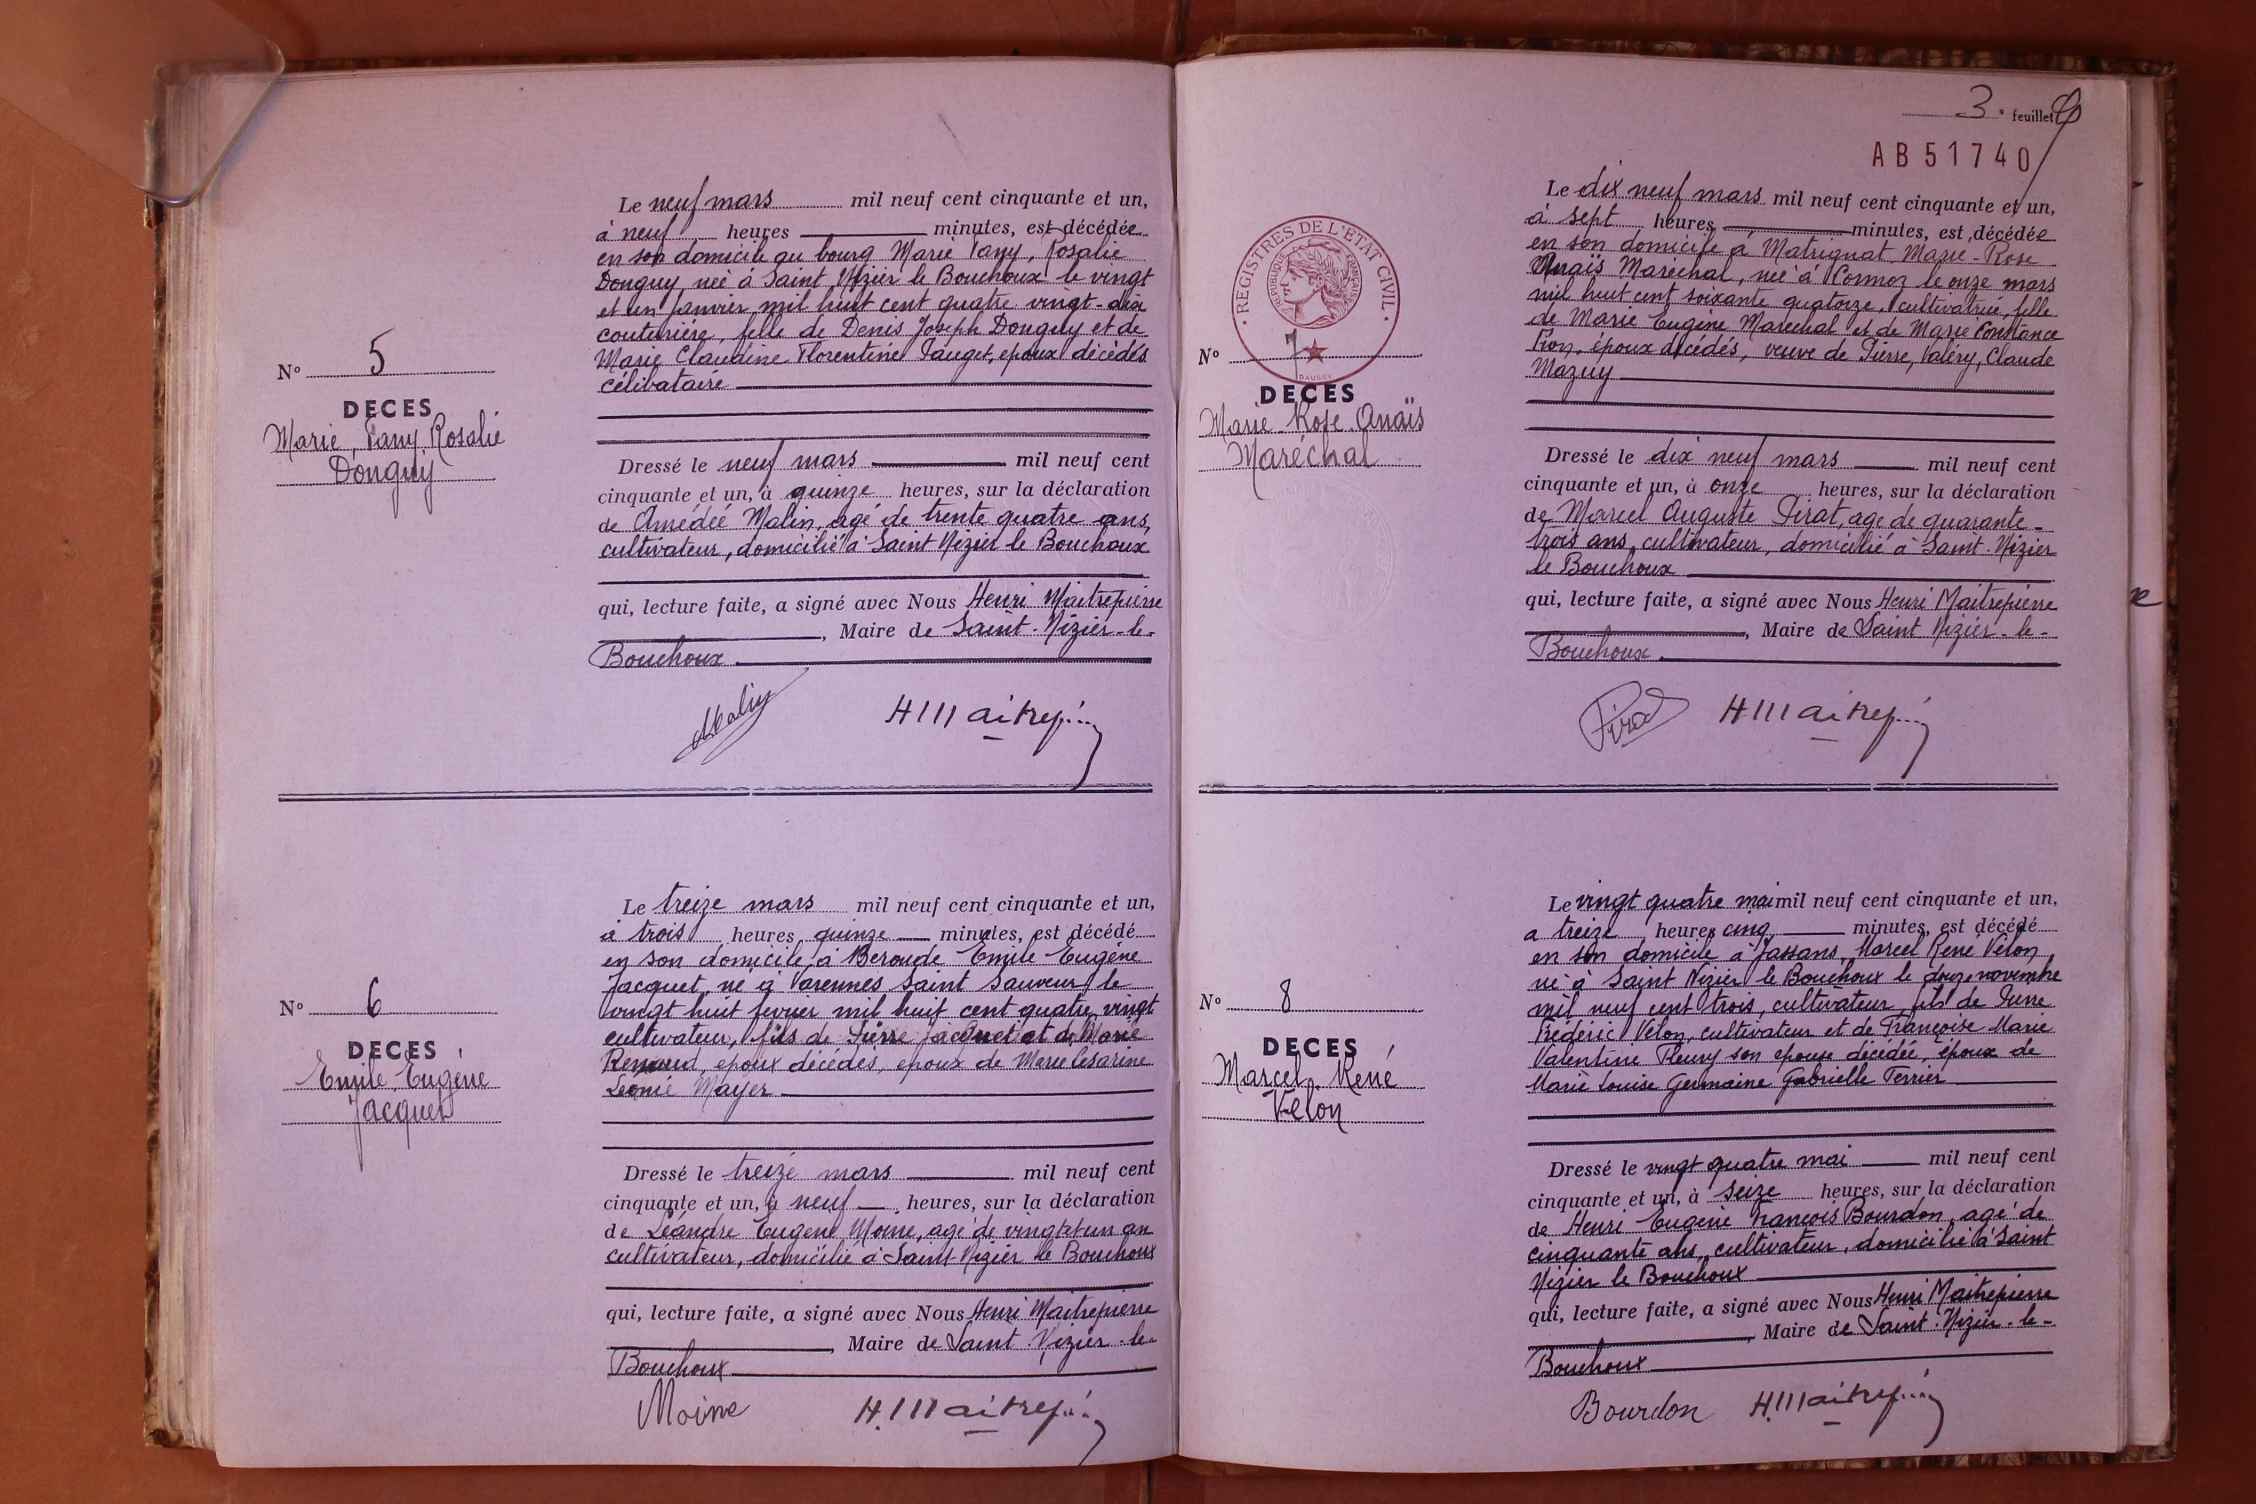 Le neuf mars mil neuf cent cinquante et un,
à neuf heures minutes, est décédée
en son domicile au bourg Marie Fany, Rosalie
Donguy, née à Saint Nizier le Bouchoux le vingt
et un janvier mil huit cent quatre vingt-dix
couturière, fille de Denis Joseph Donguy et de
Marie Claudine Florentine Pauget, époux décédés
célibataire
N° 5
DECES
Marie, Fany Rosalie
Donguy
Dressé le neuf mars mil neuf cent
cinquante et un, à quinze heures, sur la déclaration
de Amédée Malin, agé de trente quatre ans,
cultivateur, domicilié à Saint Nizier le Bouchoux
qui, lecture faite, a signé avec Nous Henri Maitrepierre
, Maire de Saint-Nizier-le-
Bouchoux
Malin H. Maitrepierre
Le treize mars mil neuf cent cinquante et un,
à trois heures quinze minutes, est décédé
en son domicile à Beroude Emile Eugène
Jacquet né à Varennes Saint Sauveur le
vingt huit février mil huit cent quatre vingt
cultivateur, fils de Pierre Jacquet et de Marie
Renaud, époux décédés, époux de Marie Césarine
Léonie Mayer
N° 6
DECES
Emile Eugène
Jacquet
Dressé le treize mars mil neuf cent
cinquante et un, à neuf heures, sur la déclaration
de Léandre Eugène Moine, agé de vingt et un an
cultivateur, domicilié à Saint Nizier le Bouchoux
qui, lecture faite, a signé avec Nous Henri Maitrepierre
, Maire de Saint-Nizier-le-
Bouchoux
Moine H. Maitrepierre
3e feuillet
AB51740
Le dix neuf mars mil neuf cent cinquante et un,
à sept heures minutes, est décédée
en son domicile à Matrignat Marie-Rose
Anaïs Maréchal, née à Cormoz le onze mars
mil huit cent soixante quatorze, cultivatrice, fille
de Marie Eugène Maréchal et de Marie Constance
Pion, époux décédés, veuve de Pierre, Valéry, Claude
Mazuy
REGISTRES DE L'ÉTAT CIVIL
RÉPUBLIQUE FRANÇAISE
N° 7
DECES
Marie Rose Anaïs
Maréchal
Dressé le dix neuf mars mil neuf cent
cinquante et un, à onze heures, sur la déclaration
de Marcel Auguste Pirat, agé de quarante-
trois ans, cultivateur, domicilié à Saint-Nizier
le Bouchoux
qui, lecture faite, a signé avec Nous Henri Maitrepierre
, Maire de Saint Nizier-le-
Bouchoux
Pirat H. Maitrepierre
Le vingt quatre mai mil neuf cent cinquante et un,
a treize heures cinq minutes, est décédé
en son domicile à Jassans, Marcel René Vélon
né à Saint Nizier le Bouchoux le douze novembre
mil neuf cent trois, cultivateur, fils de Pierre
Frédéric Vélon, cultivateur et de Françoise Marie
Valentine Fleury son épouse décédée, époux de
Marie Louise Germaine Gabrielle Terrier
N° 8
DECES
Marcel René
Vélon
Dressé le vingt quatre mai mil neuf cent
cinquante et un, à seize heures, sur la déclaration
de Henri Eugène François Bourdon, agé de
cinquante ans, cultivateur, domicilié à Saint
Nizier le Bouchoux
qui, lecture faite, a signé avec Nous Henri Maitrepierre
, Maire de Saint-Nizier-le-
Bouchoux
Bourdon H. Maitrepierre